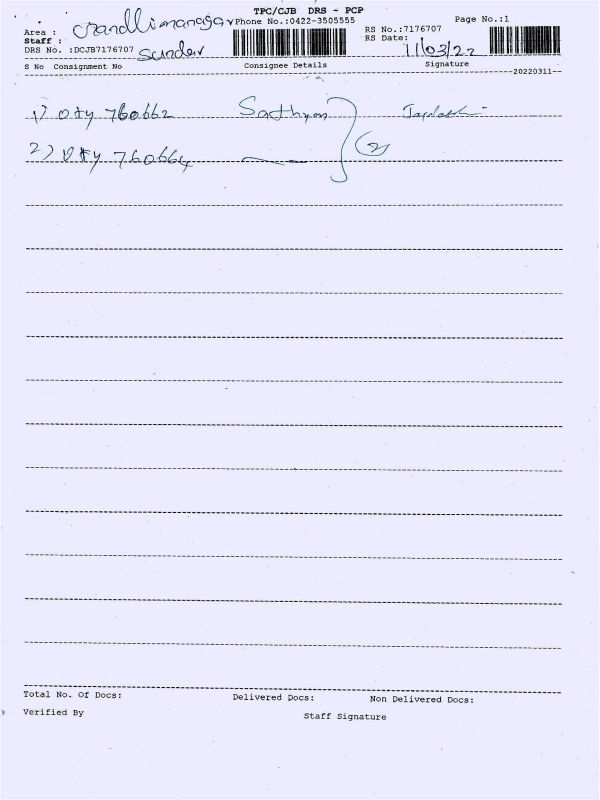 TPC/CJB DRS - PCP
Area : Phone No.:0422-3505555 Page No.:1
RS No.:7176707
Staff : Sunder RS Date: 11/03/22
DRS No. :DCJB7176707
S No Consignment No Consignee Details Signature
--20220311--
1) 760662 Sathyan
2) 760664 (2)
Total No. Of Docs: Delivered Docs: Non Delivered Docs:
Verified By Staff Signature